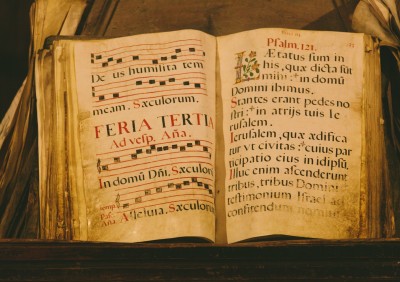 De us humilita tem
meam. Sæculorum.
FERIA TERTIA
Ad vesp. Aña.
In domũ Dñi. Sæculorũ
Aña
Alleluia. Sæculorum
Psalm. 121.
Lætatus sum in
his, quæ dicta sũt
mihi: in domũ
Domini ibimus.
Stantes erant pedes no
stri: in atrijs tuis Ie
rusalem.
Ierusalem, quæ ædifica
tur vt civitas: cuius par
ticipatio eius in idipsũ.
Illuc enim ascenderunt
tribus, tribus Domini
testimonium Israel ad
confitendum nomini